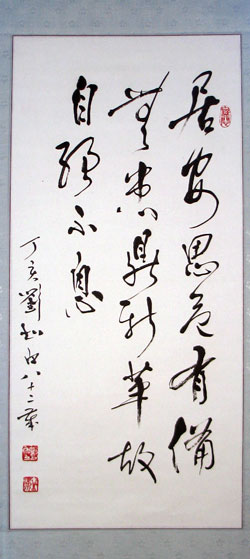 居安思危有備
無患鼎新革故
自強不息
丁亥劉八十二歲